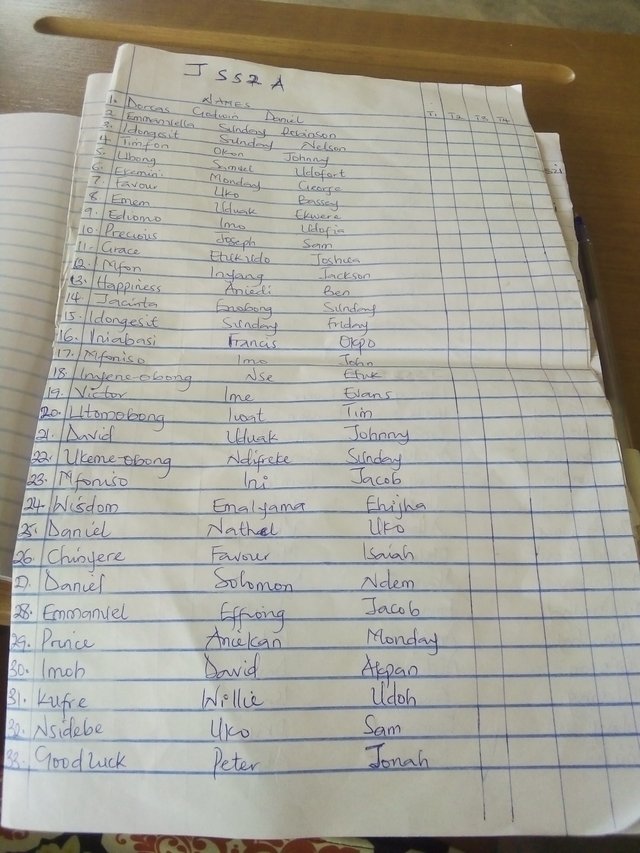 JSS2A
NAMES T1 T2 T3 T4
1. Dorcas Godwin Daniel
2. Emmanuella Sunday Dekinson
3. Idongesit Sunday Nelson
4. Timfon Okon Johnny
5. Ubong Samuel Udofort
6. Ekemini Monday George
7. Favour Uko Bassey
8. Emem Uduak Ekwere
9. Ediomo Imo Udofia
10. Precious Joseph Sam
11. Grace Etukudo Joshua
12. Mfon Inyang Jackson
13. Happiness Aniedi Ben
14. Jacinta Enobong Sunday
15. Idongesit Sunday Friday
16. Iniabasi Francis Okpo
17. Mfoniso Imo John
18. Inyene-obong Nse Etuk
19. Victor Ime Evans
20. Utomobong Iwat Tim
21. David Uduak Johnny
22. Ukeme-obong Ndifreke Sunday
23. Mfoniso Ini Jacob
24. Wisdom Emalyama Ehijha
25. Daniel Nathel Uko
26. Chinyere Favour Isaiah
27. Daniel Solomon Ndem
28. Emmanuel Effiong Jacob
29. Prince Aniekan Monday
30. Imoh David Akpan
31. Kufre Willie Udoh
32. Nsidebe Uko Sam
33. Goodluck Peter Jonah